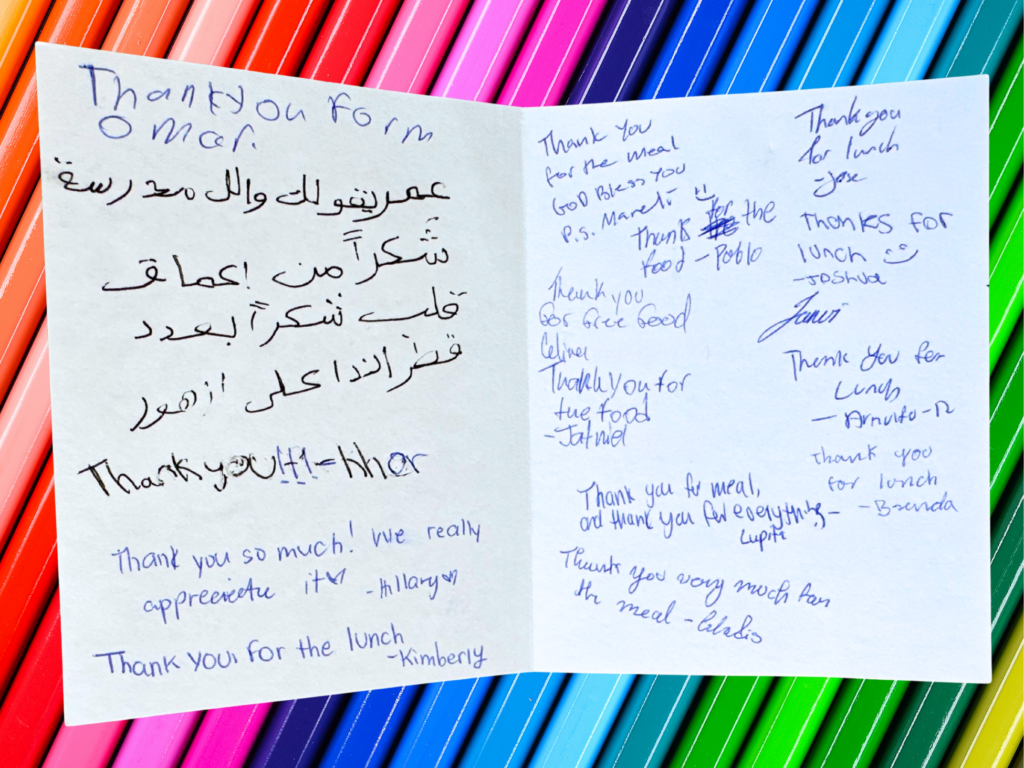 Thank you form
Omar.
عمر يقولك والل مدرسة
شكراً من إعماق
قلب شكراً بعدد
قطر الندا على ازهور
Thank you!!! - hhor
Thank you so much! We really
appreeicte it♡ -Hillary♡
Thank you for the lunch
-Kimberly
Thank You
for the meal
GOD BLESS YOU
P.S.
Thank for the
food - Pablo
Thank you
for free food
Celina
Thank you for
the food
- Jatniel
Thank you for meal,
and thank you for everything -
Lupita
Thank you very much for
the meal -
Thank you
for lunch
-Jose
Thanks for
lunch :)
-Joshua
Thank You for
Lunch
- Arnulfo-R
Thank you
for lunch
-Brenda